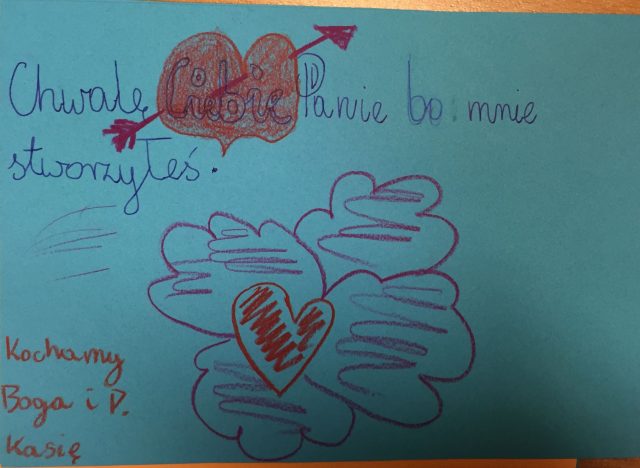 Chwalę Ciebie Panie bo mnie
stworzyłeś.
Kochamy
Boga i P.
Kasię